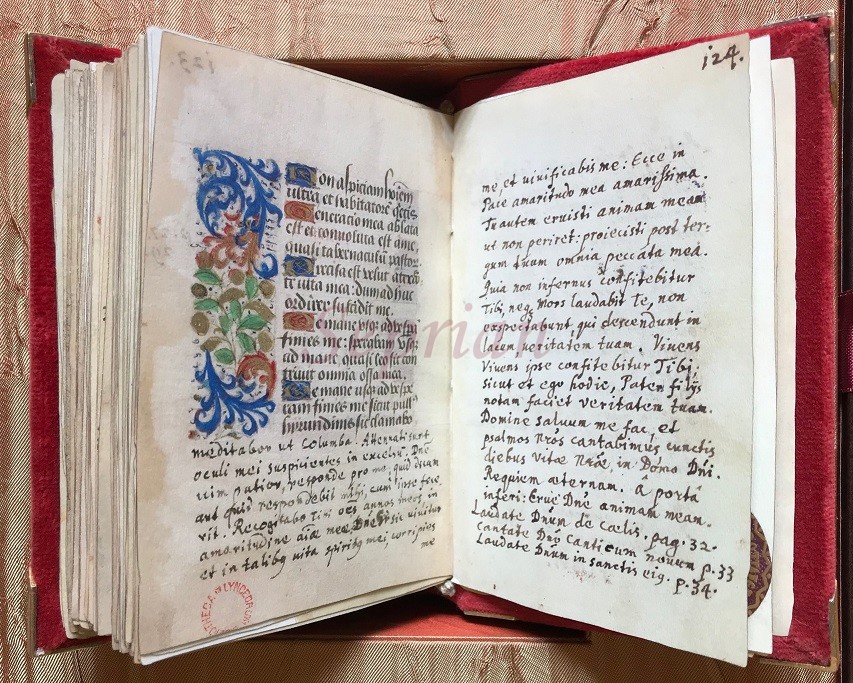 123.
Non aspiciam hoīem
ultra et habitatorē q̄etis
Generacio mea ablata
est et convoluta est a me,
quasi tabernaculū pastor
Precisa est velut a texē
te vita mea: dum adhuc
ordirer succidit me.
De mane usqz ad vespā
finies me: sperabam usqz
ad mane quasi leo sic con
trivit omnia ossa mea.
De mane usqz ad vespe
ram finies me sicut pull
hyrundinis sic clamabo
meditabor ut Columba. Attenuati sunt
oculi mei suspicientes in excelsū. Dn̄e
uim patior, responde pro me, quid dicam
aut quid respondebit mihi, cum ipse fece
rit. Recogitabo Tibi oēs annos meos in
amaritudine aīæ meæ. Dn̄e si sic uiuitur
et in talibq uita spiritq mei, corripies
me
BIBLIOTHECA LYNCEORUM
124.
me, et viuificabis me: Ecce in
Pace amaritudo mea amarissima.
Tu autem eruisti animam meam
ut non periret: proiecisti post ter=
gum tuum omnia peccata mea.
Quia non infernus confitebitur
Tibi, neq, Mors laudabit Te, non
expectabunt, qui descendunt in
lacum veritatem tuam. Vivens
Vivens ipse confitebitur Tibi,
sicut et ego hodie, Pater filijs
notam faciet veritatem tuam.
Domine saluum me fac, et
psalmos nr̄os cantabimus cunctis
diebus vitæ nr̄æ, in Domo Dn̄i.
Requiem æternam. A portâ
inferi: Erue Dn̄e animam meam.
Laudate Dn̄um de Cælis. pag. 32.
cantate Dn̄o canticum nouum p. 33
Laudate Dn̄um in sanctis eiq. p. 34.